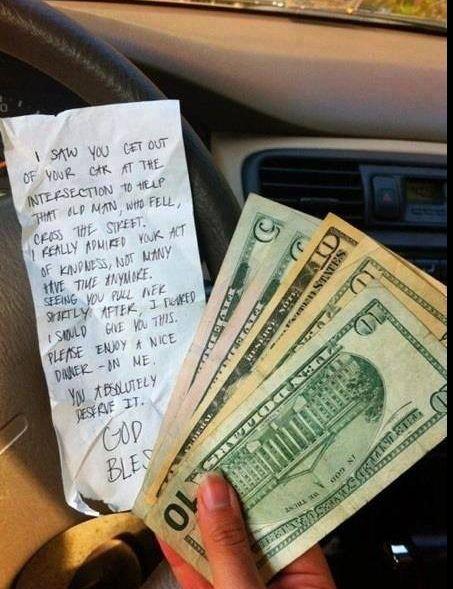 I SAW YOU GET OUT
OF YOUR CAR AT THE
INTERSECTION TO HELP
THAT OLD MAN, WHO FELL,
CROSS THE STREET.
I REALLY ADMIRED YOUR ACT
OF KINDNESS, NOT MANY
HAVE TIME ANYMORE.
SEEING YOU PULL OVER
SHORTLY AFTER, I FIGURED
I SHOULD GIVE YOU THIS.
PLEASE ENJOY A NICE
DINNER - ON ME.
YOU ABSOLUTELY
DESERVE IT.
GOD
BLES
5
5
10
10
IN GOD WE TRUST